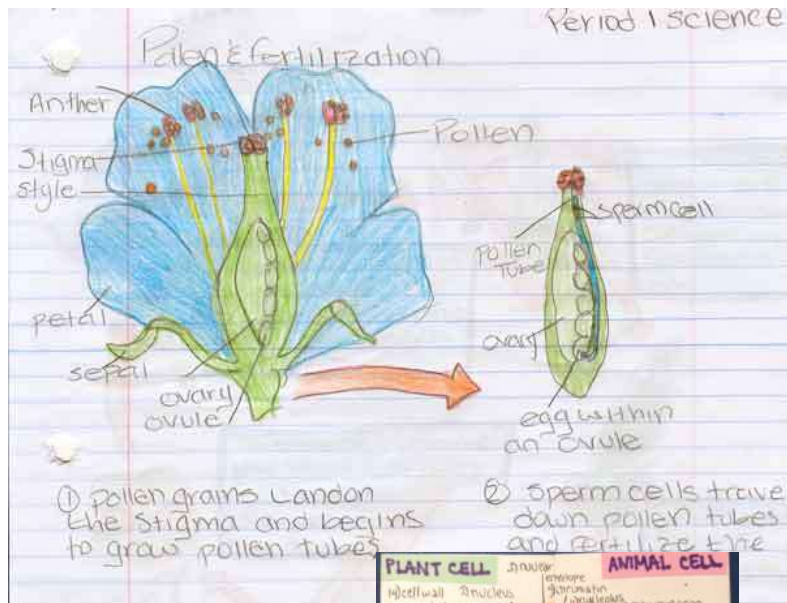 Period 1 science
Palen & fertilization
Anther
Stigma
style
Pollen
petal
sepal
ovary
ovule
spermcell
Pollen
Tube
ovary
egg within
an ovule
① pollen grains Land on
the Stigma and begins
to grow pollen tubes
② Sperm cells trave
down pollen tubes
and fertilize the
PLANT CELL
ANIMAL CELL
cell wall
nucleus
nuclear
envelope